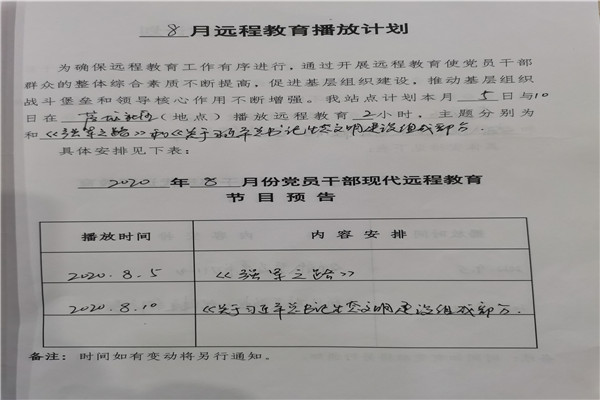 8月远程教育播放计划
为确保远程教育工作有序进行，通过开展远程教育使党员干部
群众的整体综合素质不断提高，促进基层组织建设，推动基层组织
战斗堡垒和领导核心作用不断增强。我站点计划本月 5 日与10
日在（地点）播放远程教育 2小时，主题分别为
和《强军之路》和《关于习近平总书记生态文明建设组成部分.
具体安排见下表：
2020 年 8 月份党员干部现代远程教育
节目预告
播放时间 内容安排
2020.8.5 《强军之路》
2020.8.10 《关于习近平总书记生态文明建设组成部分.
备注：时间如有变动将另行通知。